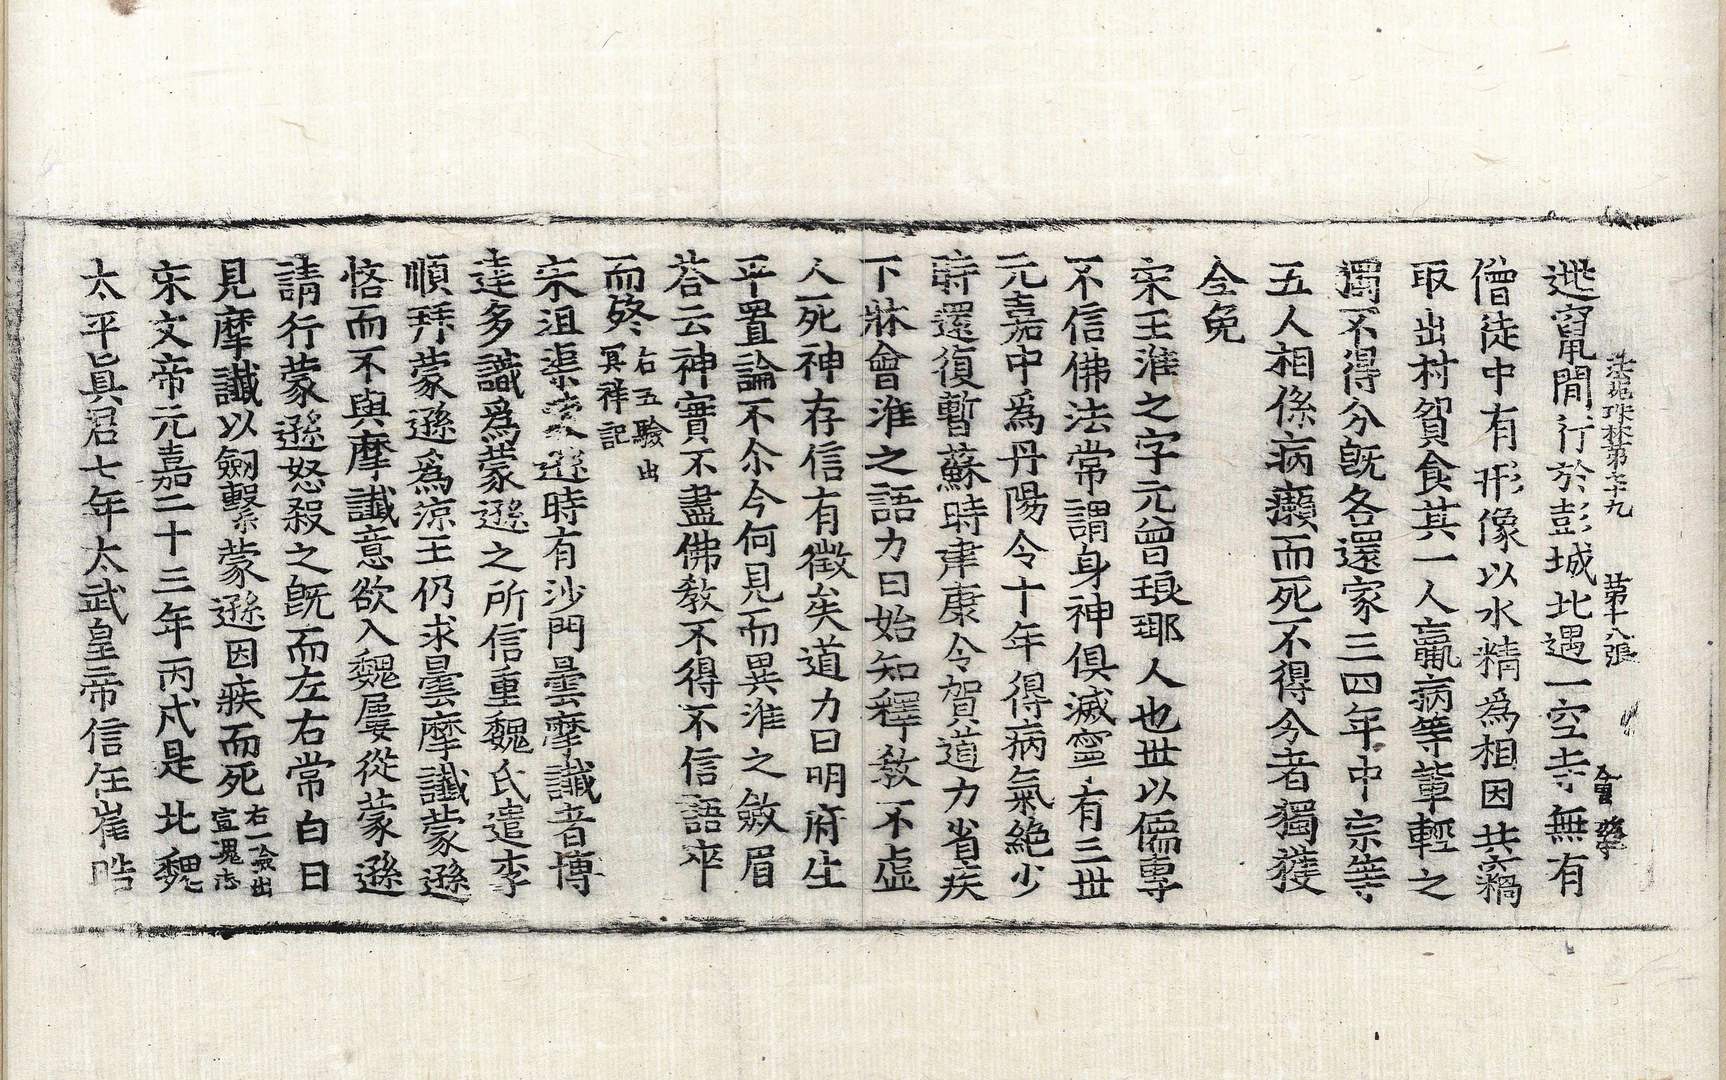 法苑珠林第七十九　第十八張　會
逃竄間行於彭城北遇一空寺無有
僧徒中有形像以水精爲相因共竊
取出村貿食其一人羸病等輩輕之
獨不得分既各還家三四年中宗等
五人相係病癩而死不得分者獨獲
全免
宋王淮之字元曾琅瑘人也世以儒專
不信佛法常謂身神俱滅寧有三世
元嘉中爲丹陽令十年得病氣絶少
時還復暫蘇時建康令賀道力省疾
下牀會淮之語力曰始知釋教不虛
人死神存信有徵矣道力曰明府生
平置論不尒今何見而異淮之斂眉
荅云神實不盡佛教不得不信語卒
而終右五驗出冥祥記
宋沮渠蒙遜時有沙門曇摩讖者博
達多識爲蒙遜之所信重魏氏遣李
順拜蒙遜爲涼王仍求曇摩讖蒙遜
悋而不與摩讖意欲入魏屢從蒙遜
請行蒙遜怒殺之既而左右常白日
見摩讖以劒擊蒙遜因疾而死右一驗出宣驗志
宋文帝元嘉二十三年丙戌是北魏
太平眞君七年太武皇帝信任崔晧